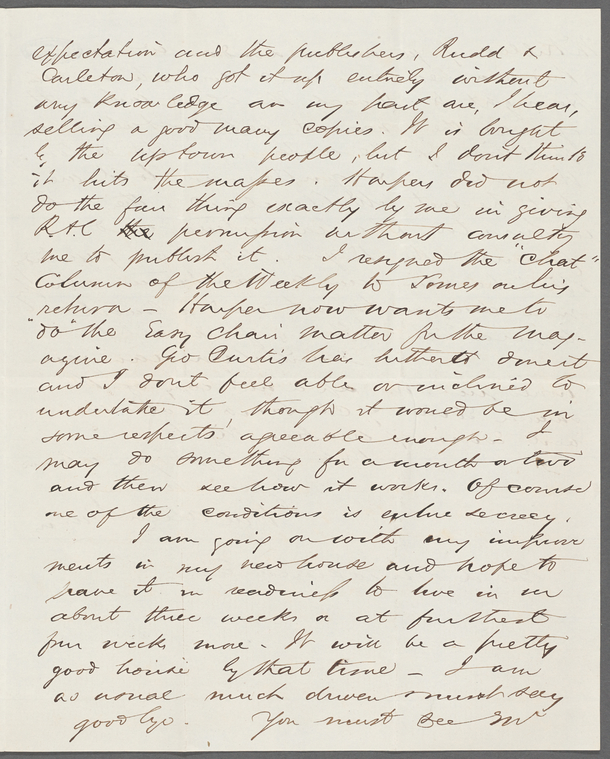 expectation and the publishers, Rudd &
Carleton, who got it up entirely without
any knowledge on my part are, I hear,
selling a good many copies. It is bought
by the uptown people, but I dont think
it hits the masses. Harpers did not
do the fair thing exactly by me in giving
R & C the permission without consulting
me to publish it. I resigned the "Chat"
Column of the Weekly to Jones on his
return – Harper now wants me to
"do" the Easy Chair matter for the mag-
azine. Geo Curtis has hitherto done it
and I dont feel able or inclined to
undertake it though it would be in
some respects agreeable enough – I
may do something for a month or two
and then see how it works. Of course
one of the conditions is entire secrecy.
I am going on with my improve
ments in my new house and hope to
have it in readiness to live in in
about three weeks or at furthest
four weeks more. It will be a pretty
good house by that time – I am
as usual much driven & must say
good bye. You must see Mr